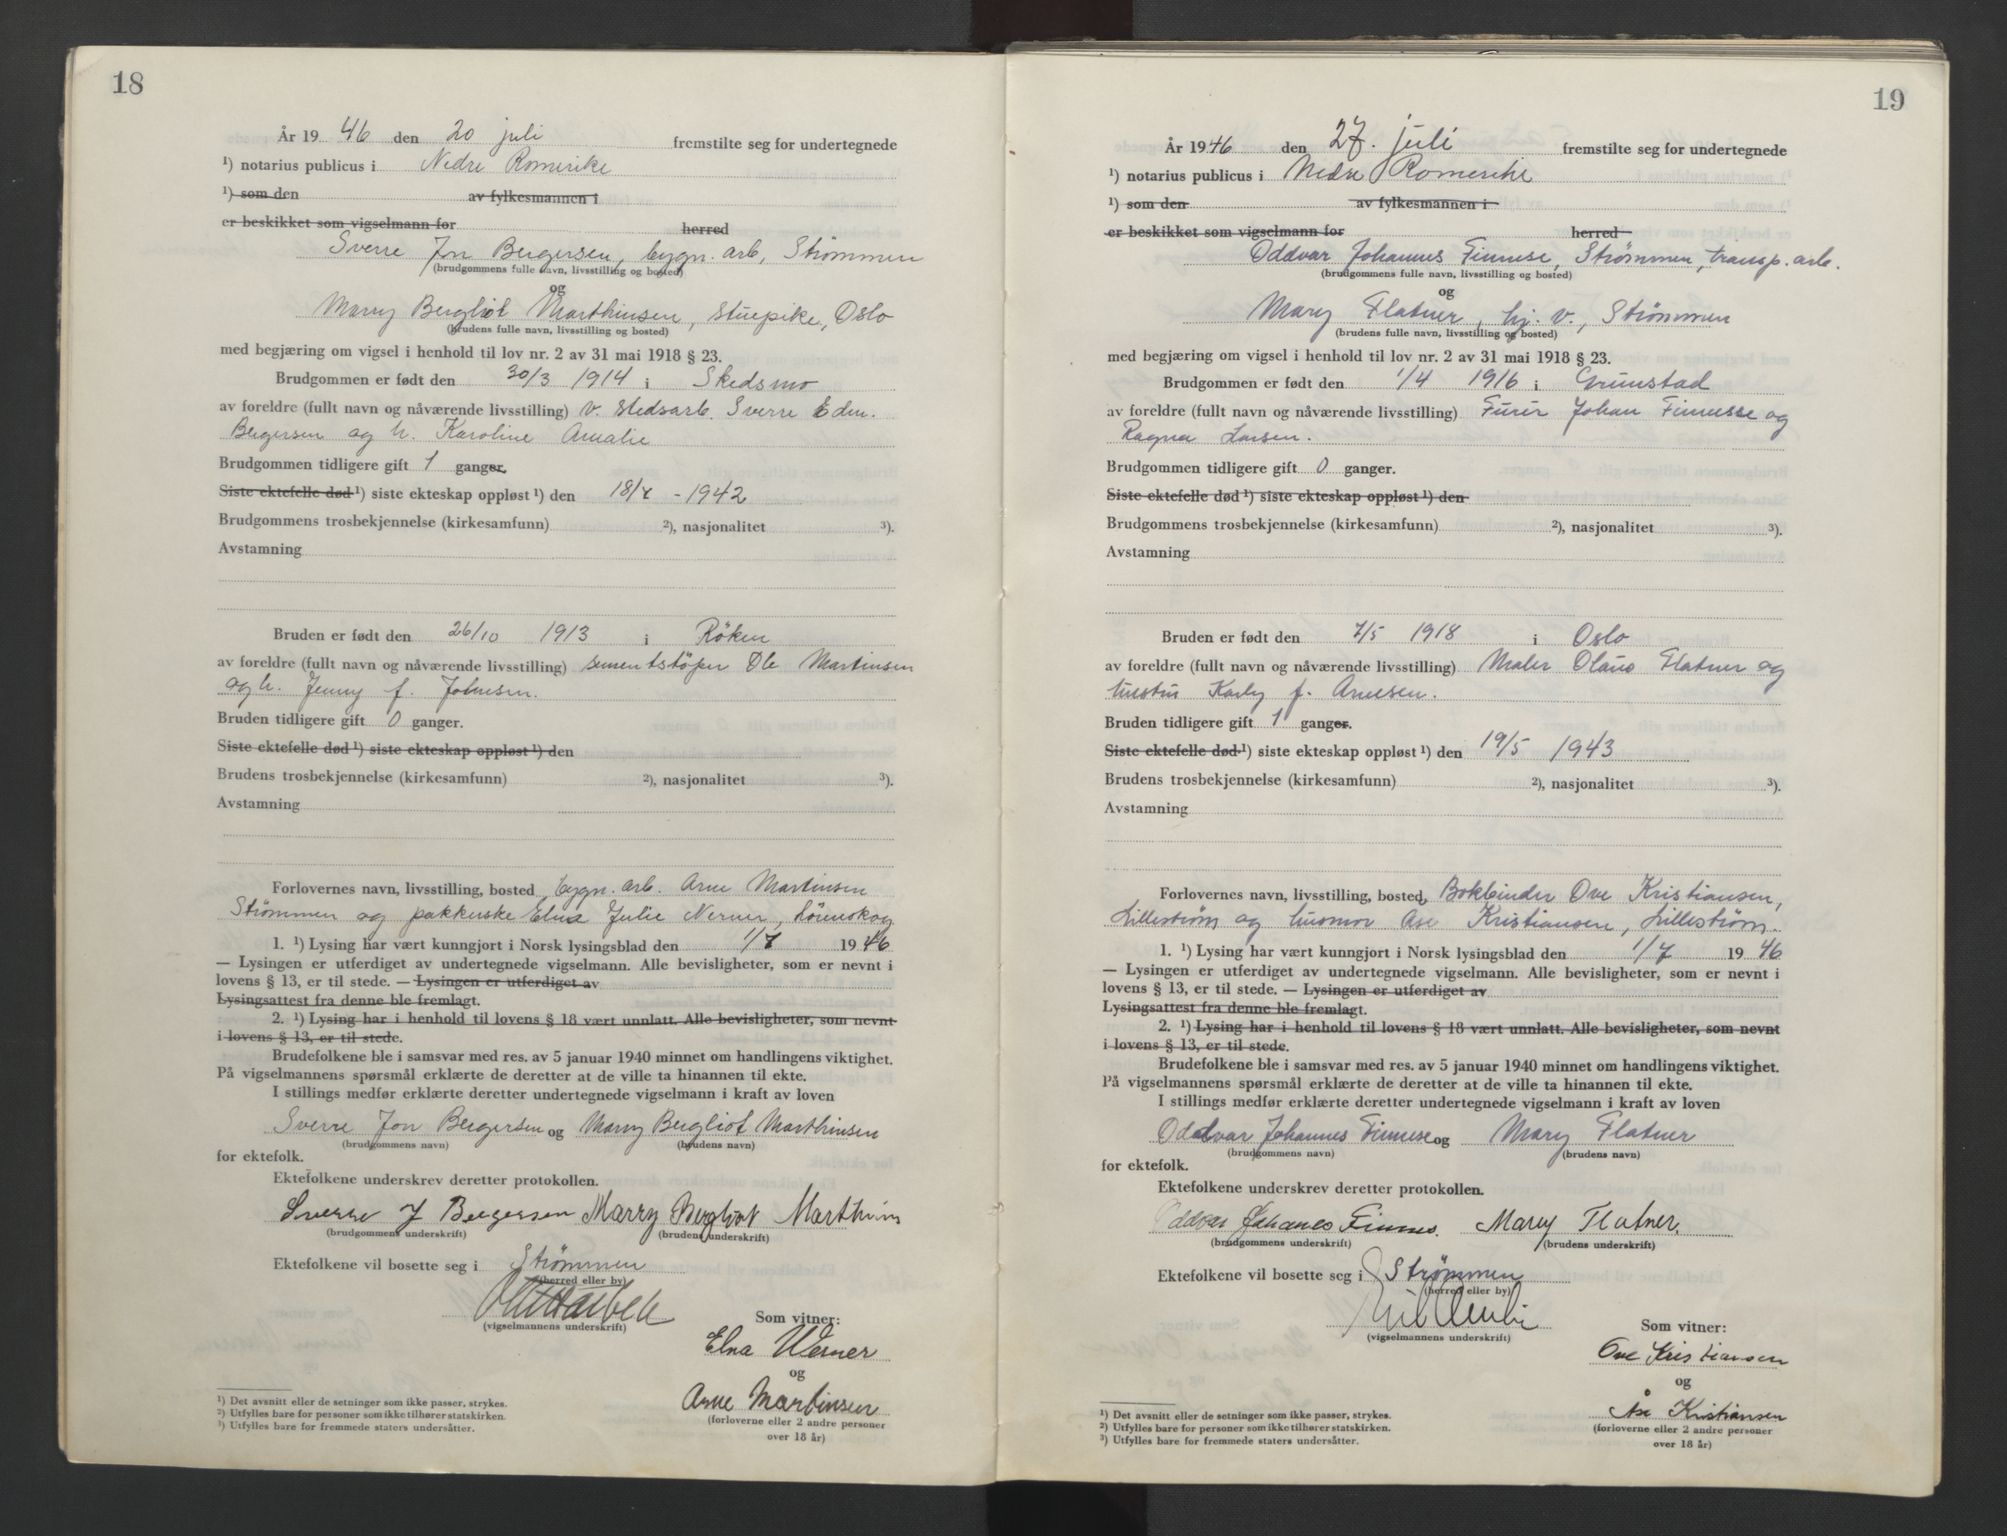 18
År 19 46 den 20 juli fremstilte seg for undertegnede
¹) notarius publicus i Nedre Romerike
¹) som den av fylkesmannen i
er beskikket som vigselmann for herred
Sverre Jon Bergersen, bygn. arb, Strømmen
(brudgommens fulle navn, livsstilling og bosted)
og
Marry Bergliot Marthinsen, stuepike, Oslo
(brudens fulle navn, livsstilling og bosted)
med begjæring om vigsel i henhold til lov nr. 2 av 31 mai 1918 § 23.
Brudgommen er født den 30/3 1914 i Skedsmo
av foreldre (fullt navn og nåværende livsstilling) v. stedsarb. Sverre Edm.
Bergersen og h. Karoline Amalie
Brudgommen tidligere gift 1 ganger.
Siste ektefelle død ¹) siste ekteskap oppløst ¹) den 18/4 - 1942
Brudgommens trosbekjennelse (kirkesamfunn) ²), nasjonalitet ³).
Avstamning
Bruden er født den 26/10 1913 i Röken
av foreldre (fullt navn og nåværende livsstilling) sementstöper Ole Martinsen
og h. Jenny f. Johnsen.
Bruden tidligere gift 0 ganger.
Siste ektefelle død ¹) siste ekteskap oppløst ¹) den
Brudens trosbekjennelse (kirkesamfunn) ²), nasjonalitet ³).
Avstamning
Forlovernes navn, livsstilling, bosted bygn. arb. Arne Martinsen
Strømmen og pakkerske Elna Julie Nerner, Lörenskog
1. ¹) Lysing har vært kunngjort i Norsk lysingsblad den 1/7 19 46
— Lysingen er utferdiget av undertegnede vigselmann. Alle bevisligheter, som er nevnt i
lovens § 13, er til stede. — Lysingen er utferdiget av
Lysingsattest fra denne ble fremlagt.
2. ¹) Lysing har i henhold til lovens § 18 vært unnlatt. Alle bevisligheter, som nevnt
i lovens § 13, er til stede.
Brudefolkene ble i samsvar med res. av 5 januar 1940 minnet om handlingens viktighet.
På vigselmannens spørsmål erklærte de deretter at de ville ta hinannen til ekte.
I stillings medfør erklærte deretter undertegnede vigselmann i kraft av loven
Sverre Jon Bergersen og Marry Bergliot Marthinsen
(brudgommens navn) (brudens navn)
for ektefolk.
Ektefolkene underskrev deretter protokollen.
Sverre J Bergersen Marry Bergliot Marthins
(brudgommens underskrift) (brudens underskrift)
Ektefolkene vil bosette seg i Strömmen
(herred eller by)
(vigselmannens underskrift)
Som vitner:
Elna Werner
og
Arne Martinsen
(forloverne eller 2 andre personer
over 18 år)
¹) Det avsnitt eller de setninger som ikke passer, strykes.
²) Utfylles bare for personer som ikke tilhører statskirken.
³) Utfylles bare for fremmede staters undersåtter.
19
År 19 46 den 27. juli fremstilte seg for undertegnede
¹) notarius publicus i Nedre Romerike
¹) som den av fylkesmannen i
er beskikket som vigselmann for herred
Oddvar Johannes Finnese, Strømmen, transp. arb.
(brudgommens fulle navn, livsstilling og bosted)
og
Mary Flatner, hj. v., Strømmen
(brudens fulle navn, livsstilling og bosted)
med begjæring om vigsel i henhold til lov nr. 2 av 31 mai 1918 § 23.
Brudgommen er født den 1/4 1916 i Grimstad
av foreldre (fullt navn og nåværende livsstilling) Furér Johan Finnesse og
Ragna Larsen.
Brudgommen tidligere gift 0 ganger.
Siste ektefelle død ¹) siste ekteskap oppløst ¹) den
Brudgommens trosbekjennelse (kirkesamfunn) ²), nasjonalitet ³).
Avstamning
Bruden er født den 7/5 1918 i Oslo
av foreldre (fullt navn og nåværende livsstilling) Maler Olaus Flatner og
hustru Karly f. Arnesen.
Bruden tidligere gift 1 ganger.
Siste ektefelle død ¹) siste ekteskap oppløst ¹) den 19/5 1943
Brudens trosbekjennelse (kirkesamfunn) ²), nasjonalitet ³).
Avstamning
Forlovernes navn, livsstilling, bosted Bokbinder Ove Kristiansen,
Lillestrøm og husmor Ase Kristiansen, Lillestrøm.
1. ¹) Lysing har vært kunngjort i Norsk lysingsblad den 1/7 19 46
— Lysingen er utferdiget av undertegnede vigselmann. Alle bevisligheter, som er nevnt i
lovens § 13, er til stede. — Lysingen er utferdiget av
Lysingsattest fra denne ble fremlagt.
2. ¹) Lysing har i henhold til lovens § 18 vært unnlatt. Alle bevisligheter, som nevnt
i lovens § 13, er til stede.
Brudefolkene ble i samsvar med res. av 5 januar 1940 minnet om handlingens viktighet.
På vigselmannens spørsmål erklærte de deretter at de ville ta hinannen til ekte.
I stillings medfør erklærte deretter undertegnede vigselmann i kraft av loven
Oddvar Johannes Finnese og Mary Flatner
(brudgommens navn) (brudens navn)
for ektefolk.
Ektefolkene underskrev deretter protokollen.
Oddvar Johanes Finnes. Mary Flatner.
(brudgommens underskrift) (brudens underskrift)
Ektefolkene vil bosette seg i Strömmen
(herred eller by)
(vigselmannens underskrift)
Som vitner:
Ove Kristiansen
og
Åse Kristiansen
(forloverne eller 2 andre personer
over 18 år)
¹) Det avsnitt eller de setninger som ikke passer, strykes.
²) Utfylles bare for personer som ikke tilhører statskirken.
³) Utfylles bare for fremmede staters undersåtter.